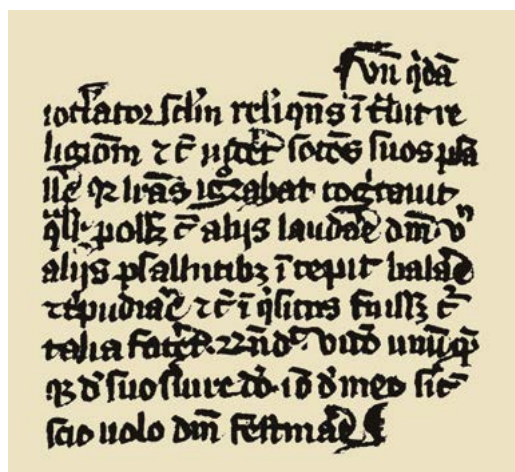 Vn̄ q̇dā
ioc̄lator sc̄lm relīq̄ns ītᷓuit re
ligiōm ⁊ c̄ soc̄os suos psa
ll̄e qꝛ lr̄as ignorabat cogitauit
qᷓlit̄ poss; c̄ alijs laudaē dm̄. vn̄
alijs psallntibꝫ īcepit balaē
⁊ tͥpudiaē ⁊ c̄ īqͥsitus fuiss; c̄
talia fac̄et. rn̄d. video unūqͫ
qꝫ d̄ suo s̄uire do. iō d̄ meo sic̄
scio uolo dm̄ festinaē